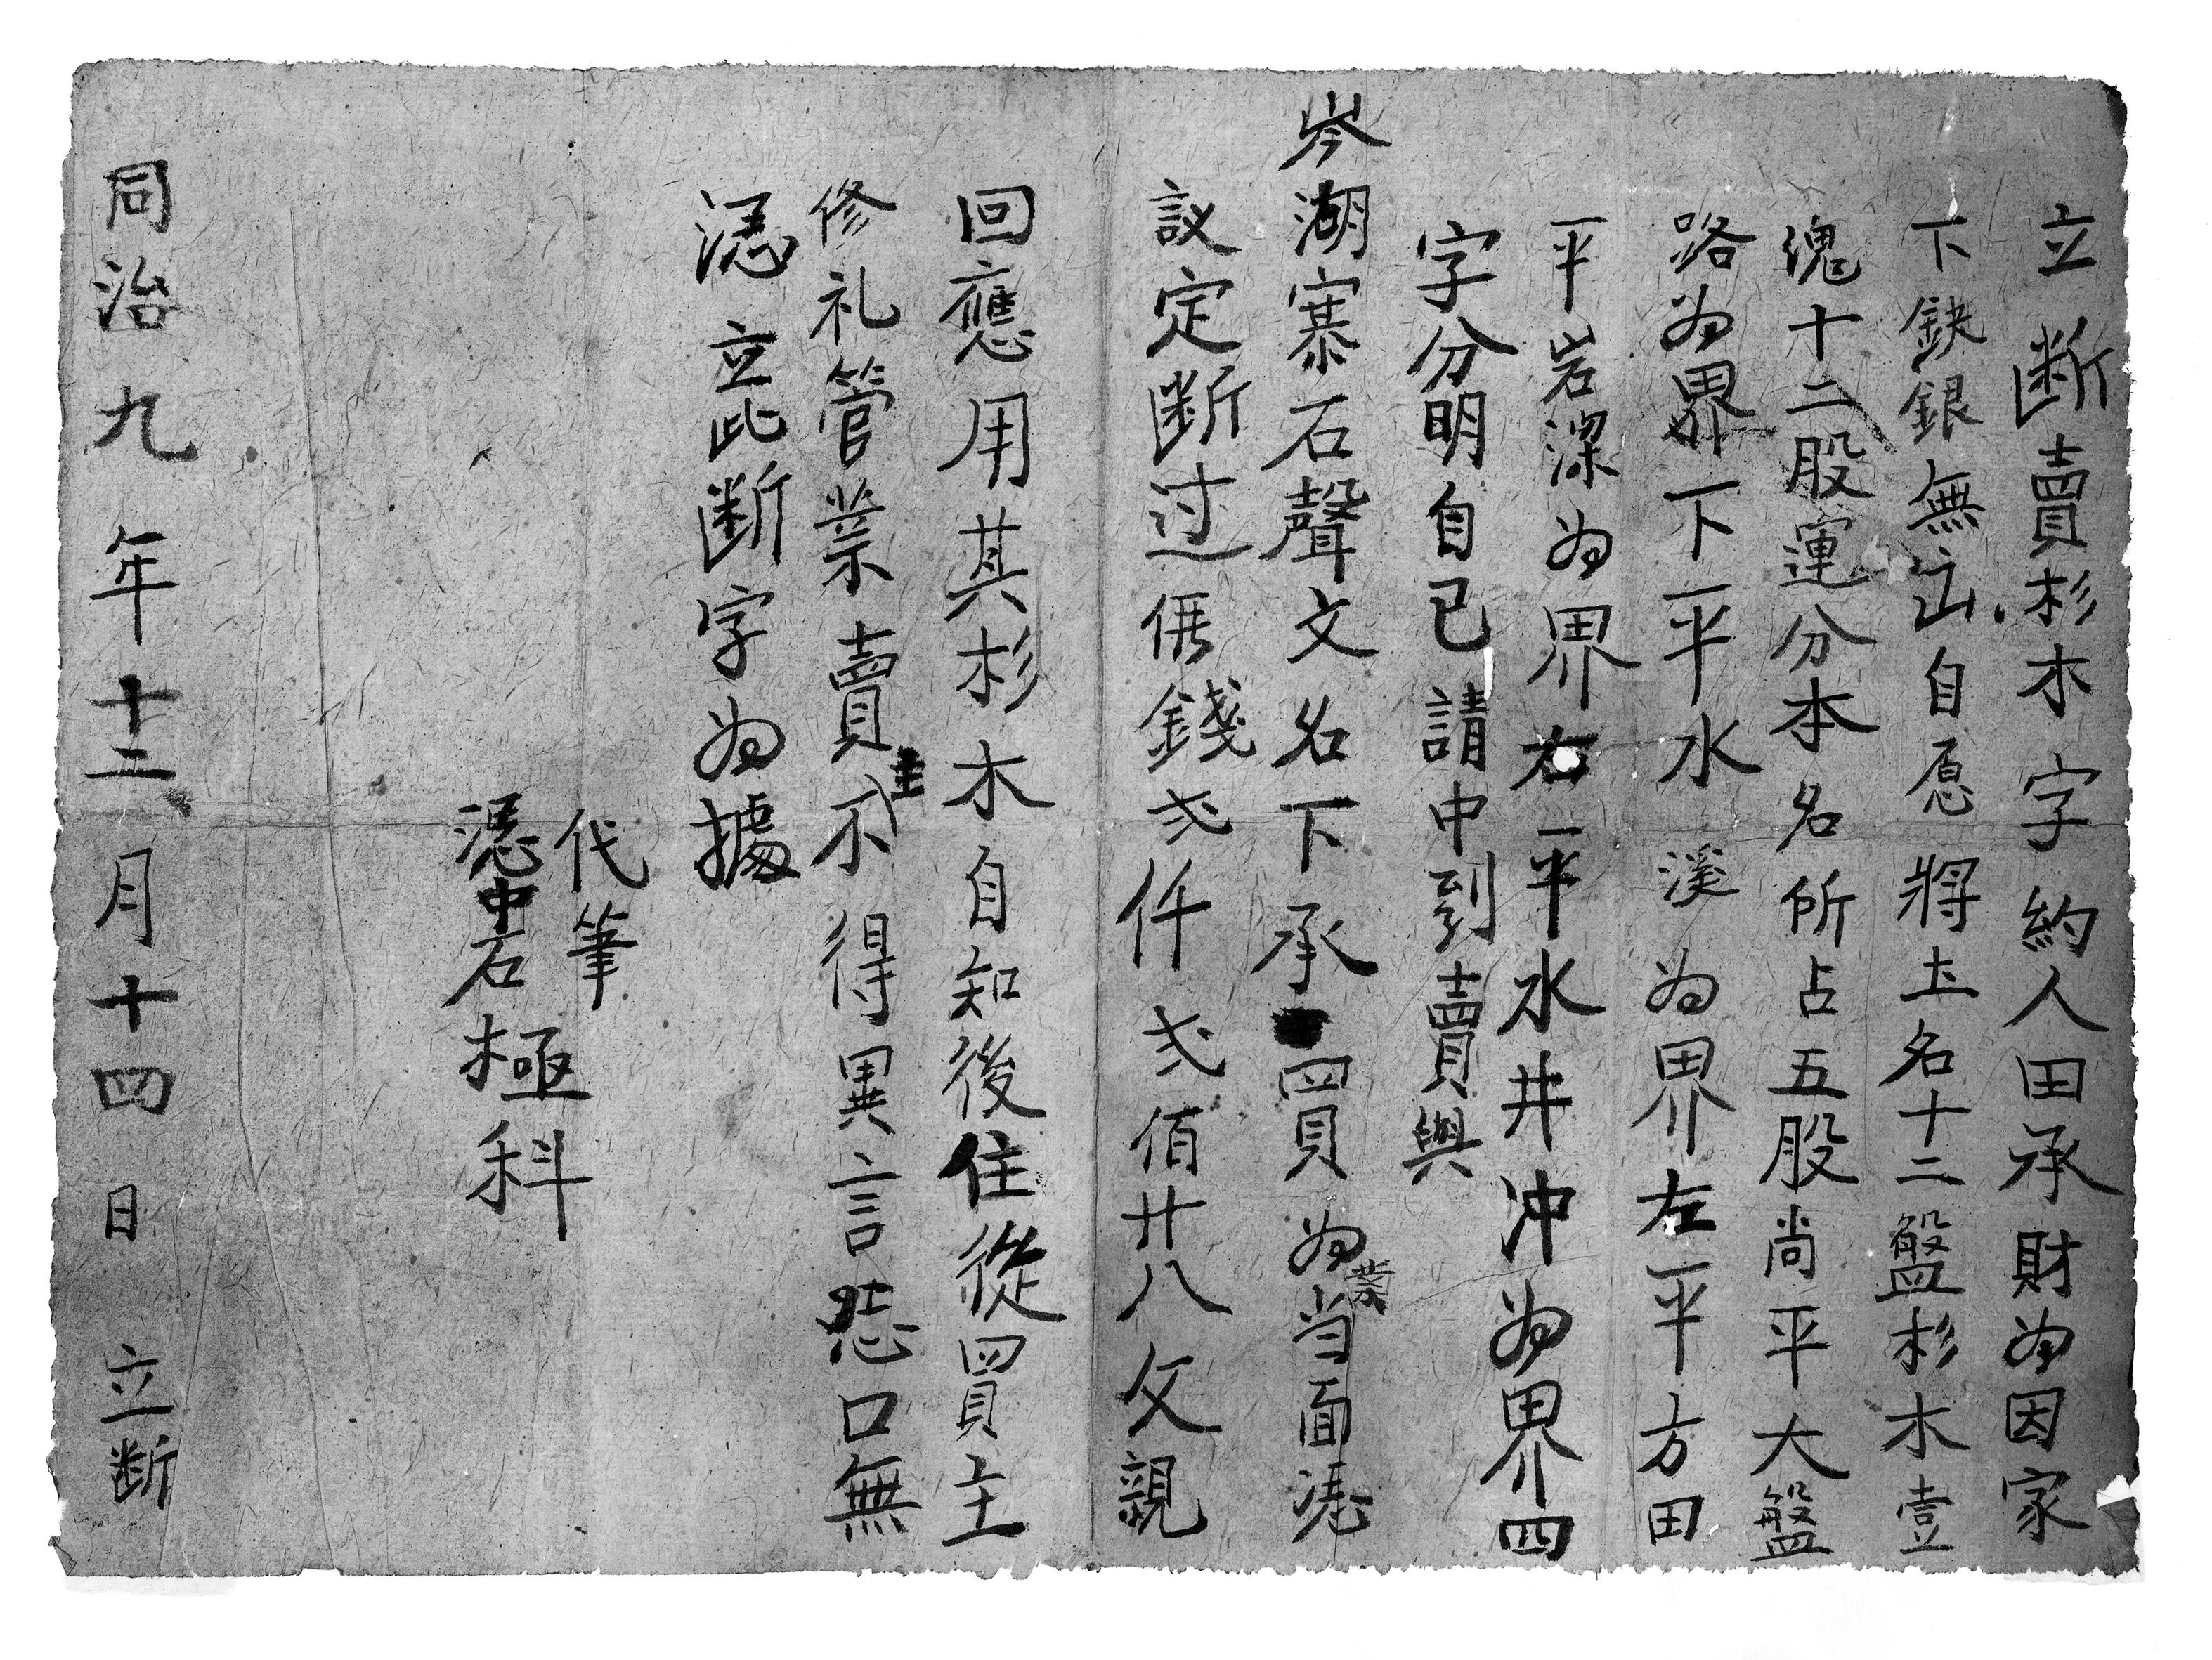 立断賣杉木字約人田承財為因家
下鈌銀無㞮自愿將土名十二盤杉木壹
塊十二股運分本名所占五股尚平大盤
路為界下平水溪為界左平方田
平岩深為界右平水井冲為界四
字分明自己請中到賣與
岑湖寨石聲文名下承買為業当面凴
議定断过價錢弍仟弍佰廿八文親
回應用其杉木自知後住從買主
修礼管業賣主不得異言恐口無
凴立此断字為據
代筆
凴中石極科
同治九年十二月十四日立断